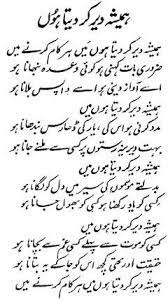 ہمیشہ دیر کر دیتا ہوں
ہمیشہ دیر کر دیتا ہوں میں ہر کام کرنے میں
ضروری بات کہنی ہو کوئی وعدہ نبھانا ہو
اسے آواز دینی ہو اسے واپس بلانا ہو
ہمیشہ دیر کر دیتا ہوں میں
مدد کرنی ہو اس کی یار کی ڈھارس بندھانا ہو
بہت دیرینہ رستوں پر کسی سے ملنے جانا ہو
ہمیشہ دیر کر دیتا ہوں میں
بدلتے موسموں کی سیر میں دل کو لگانا ہو
کسی کو یاد رکھنا ہو کسی کو بھول جانا ہو
ہمیشہ دیر کر دیتا ہوں میں
کسی کو موت سے پہلے کسی غم سے بچانا ہو
حقیقت اور تھی کچھ اس کو جا کے یہ بتانا ہو
ہمیشہ دیر کر دیتا ہوں میں